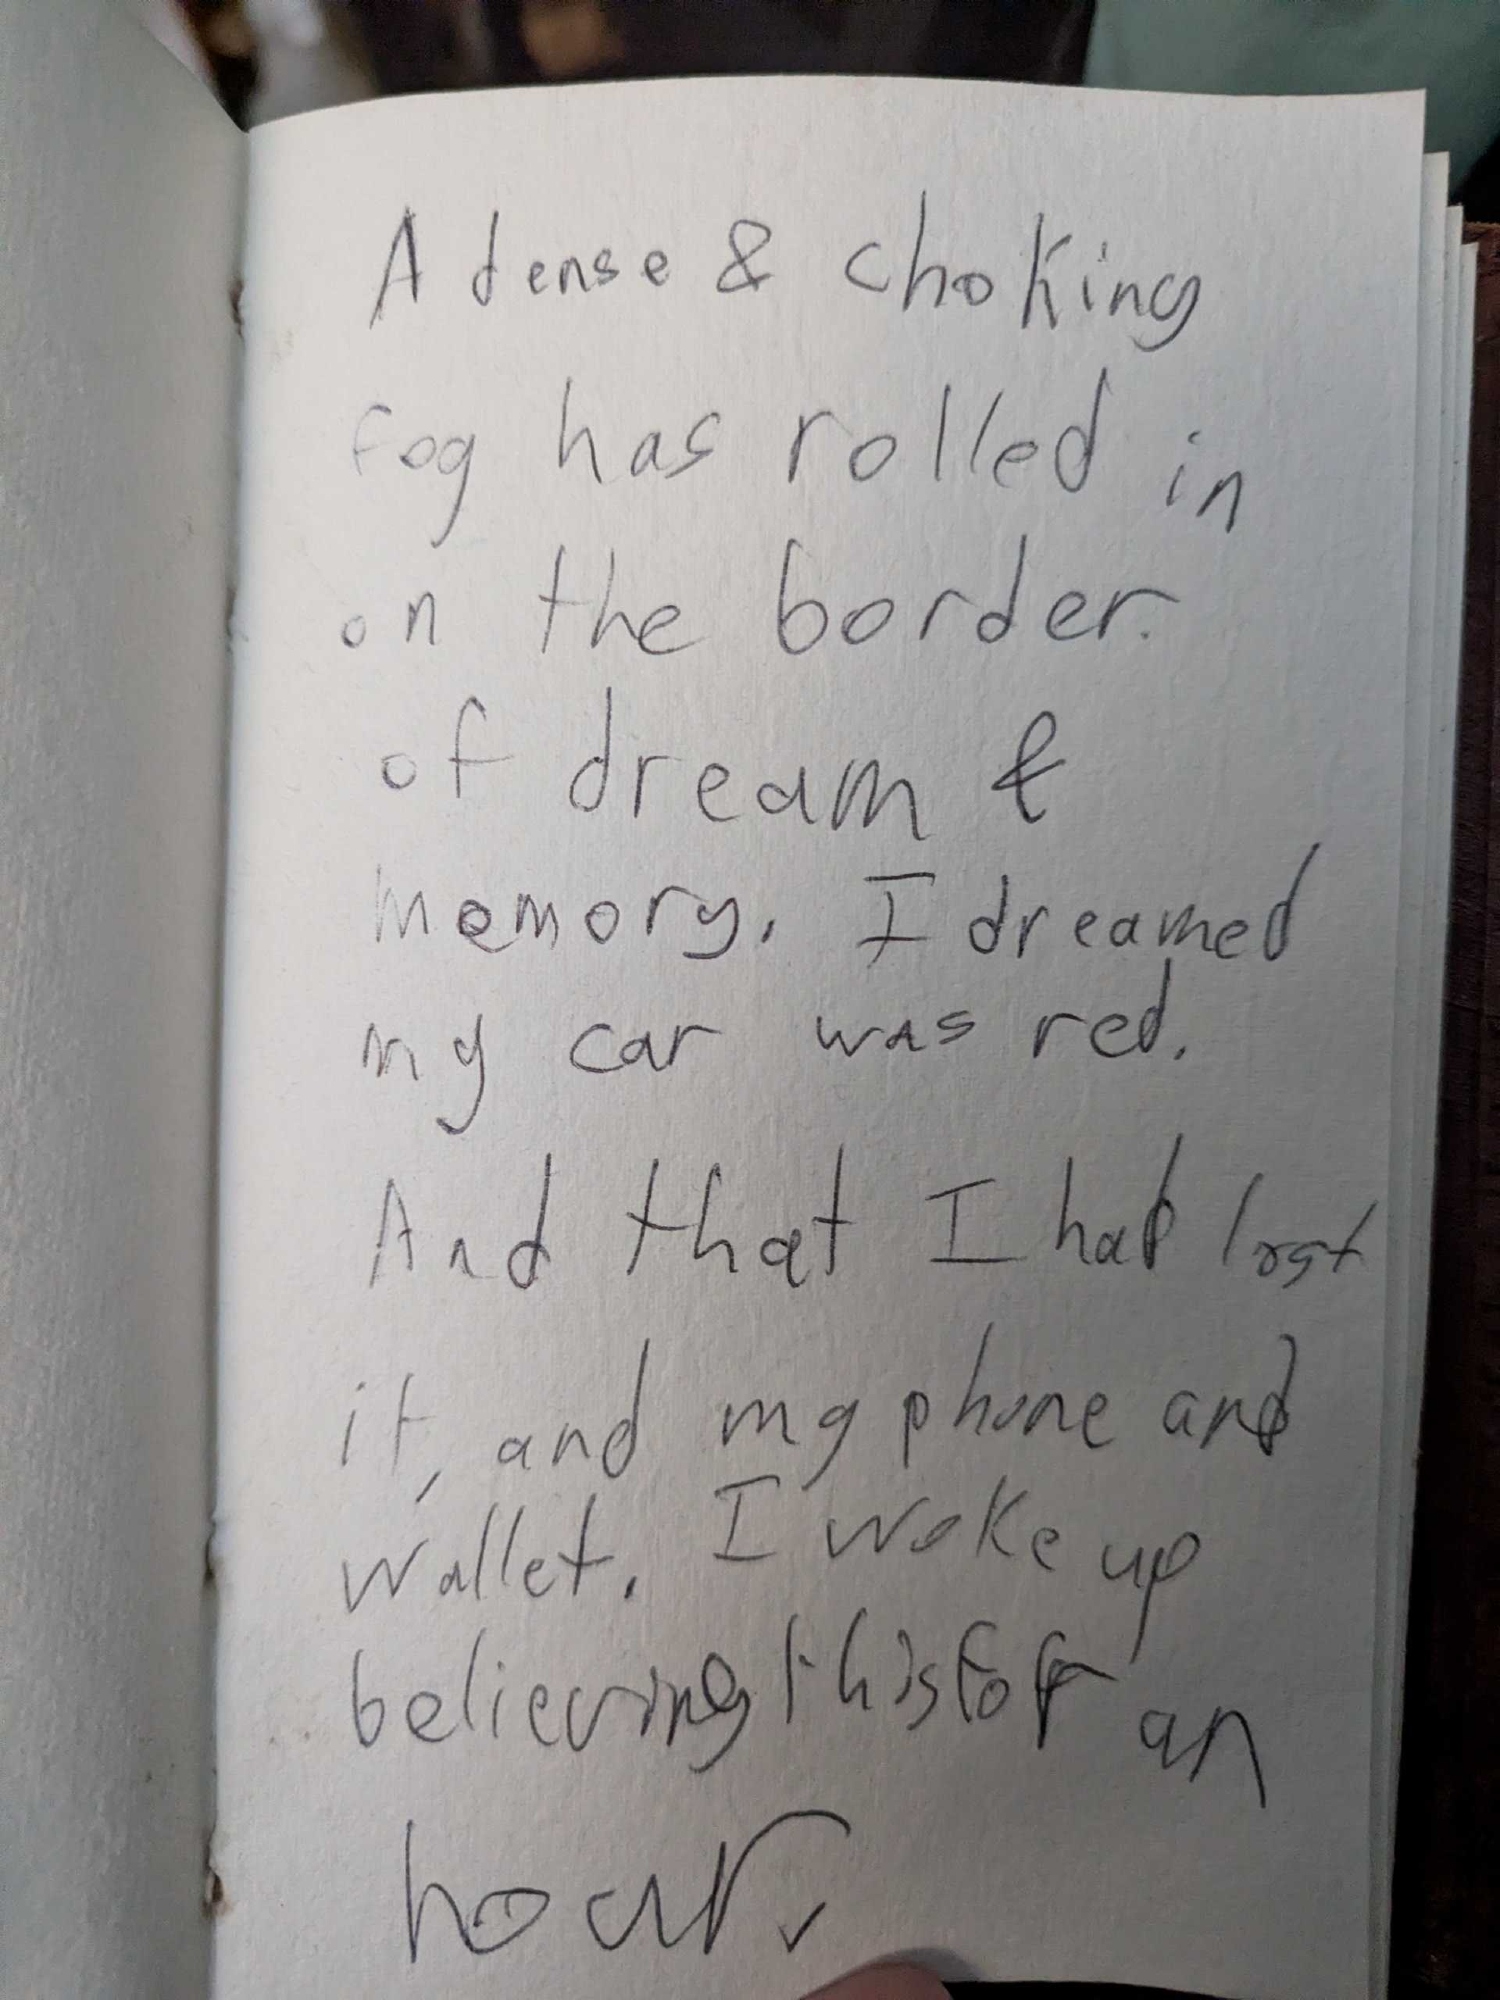 A dense & choking
fog has rolled in
on the border
of dream &
memory. I dreamed
my car was red.
And that I had lost
it, and my phone and
wallet. I woke up
believing this for an
hour.